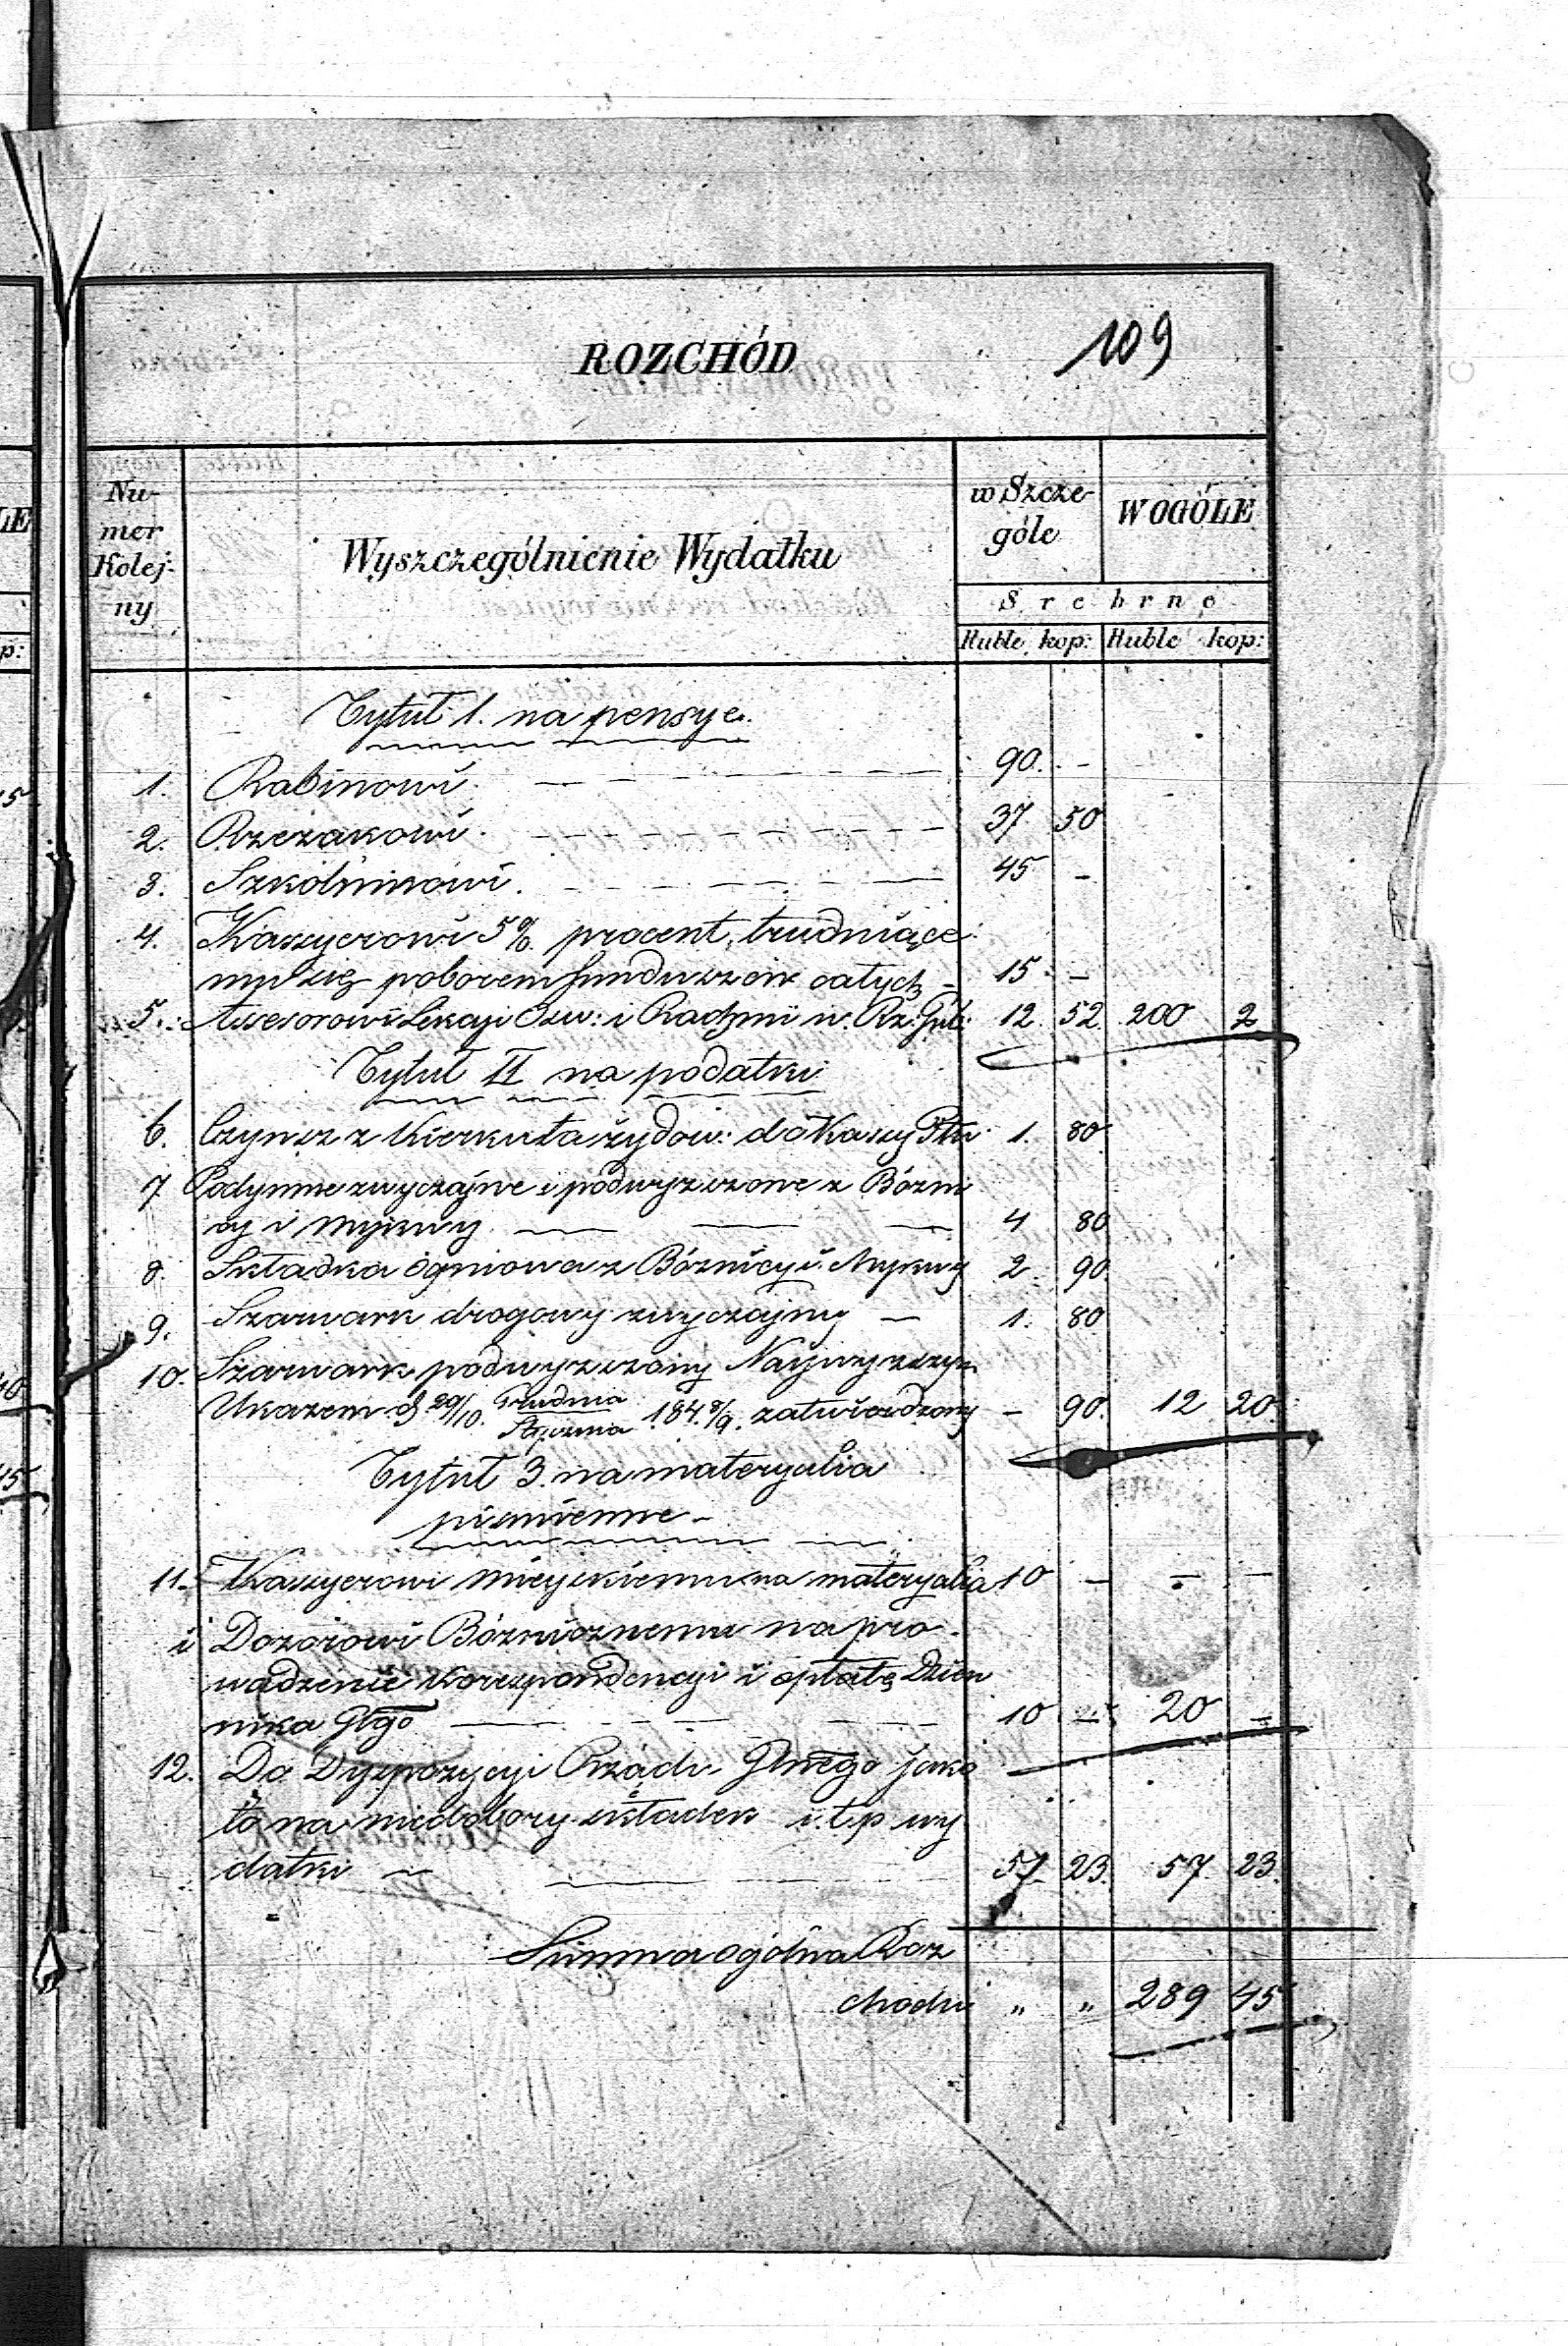 ROZCHÓD 109
Numer Kolejny
Wyszczególnienie Wydatku
w Szczególe
W OGÓLE
Srebrne
Ruble kop: Ruble kop:
Tytuł 1. na pensye.
1. Rabinowi. 90. -
2. Rzezakowi. 37 50
3. Szkólnikowi. 45 -
4. Kassyerowi 5% procent, trudniące
mu się poborem funduszów całych - 15 -
5. Assesorowi Sekcyi Ozw: i Rachmi w. Rz: Gub: 12. 52. 200 2
Tytuł II na podatki
6. Czynsz z Kierkuta żydow: do Kassy 1. 80.
7 Podymne zwyczajne i podwyższone z Bóżni
cy i Mykwy 4 80
8. Składka ogniowa z Bóźnicy i Mykwy 2 90.
9. Szarwark drogowy zwyczajny — 1. 80
10. Szarwark podwyższony Naywyższym
Ukazem d 29/10. Grudnia/Stycznia 184 8/9. zatwierdzony - 90. 12 20.
Tytuł 3. na materyalia
piśmienne -
11. Kassyerowi Mieyskiemu na materyalia 10 - - -
i Dozorowi Bóźnicznemu na pro-
wadzenie korrespondencyi i opłatę Dzien
nika Glgo 10 - 20 -
12. Do Dyspozycyi Rządu Glnego jako
to na niedobory składek i.t.p wy
datki — 57. 23. 57 23.
Summa ogólna Roz
chodu " " 289 45